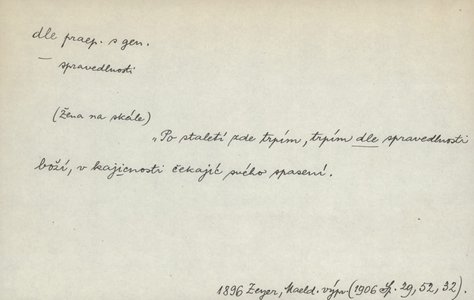 dle praep. s gen.
— spravedlnosti
(Žena na skále)
„Po staletí zde trpím, trpím dle spravedlnosti
boží, v kajicnosti čekajíc svého spasení.
1896 Zeyer, Maeld. výpr (1906 Sp. 29, 52, 32).